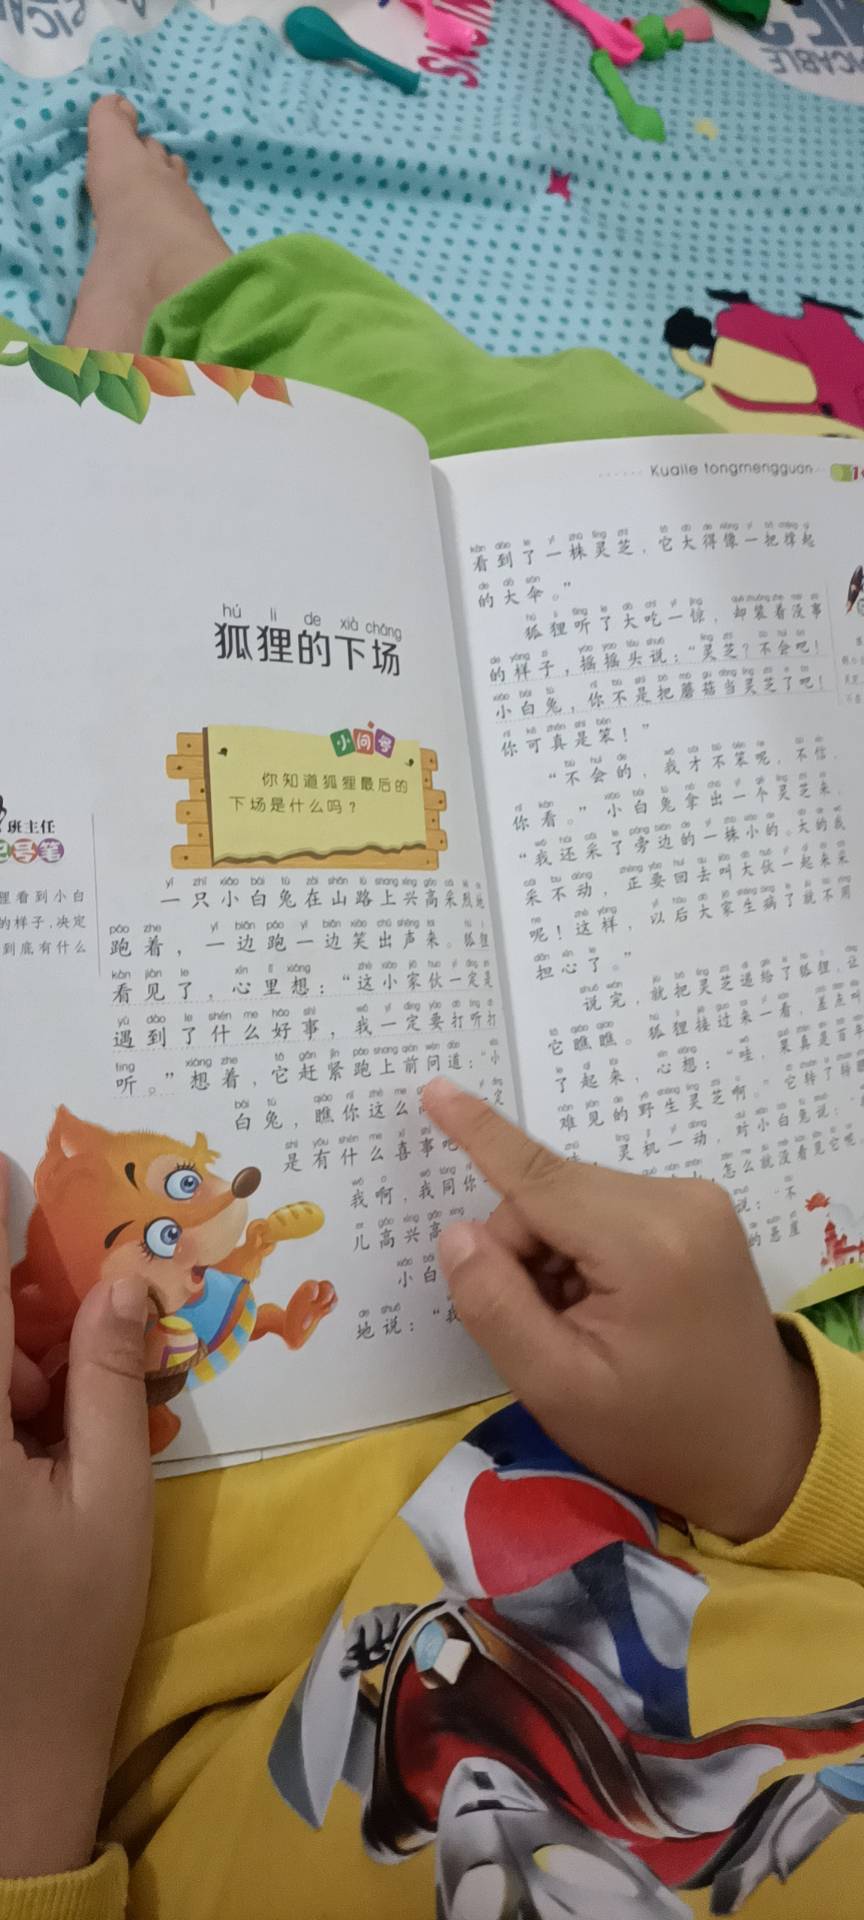 hú li de xià chǎng
狐狸的下场
小问号
你知道狐狸最后的
下场是什么吗？
班主任
记号笔
狸看到小白
的样子，决定
到底有什么
一只小白兔在山路上兴高采烈地
跑着，一边跑一边笑出声来。狐狸
看见了，心里想：“这小家伙一定是
遇到了什么好事，我一定要打听打
听。”想着，它赶紧跑上前问道：“小
白兔，瞧你这么 一定
是有什么喜事吧
我啊，我同你一
儿高兴高
小白
地说：“我
Kuaile tongmengguan
看到了一株灵芝，它大得像一把撑起
的大伞。”
狐狸听了大吃一惊，却装着没事
的样子，摇摇头说：“灵芝？不会吧！
小白兔，你不是把蘑菇当灵芝了吧！
你可真是笨！”
“不会的，我才不笨呢，不信，
你看。”小白兔拿出一个灵芝来，
“我还采了旁边的一株小的。大的我
采不动，正要回去叫大伙一起来采
呢！这样，以后大家生病了就不用
担心了。”
说完，就把灵芝递给了狐狸，让
它瞧瞧。狐狸接过来一看，差点叫
了起来，心想：“哇，果真是百年
难见的野生灵芝啊。”它转了转眼
，灵机一动，对小白兔说：
，怎么就没看见它呢
说：“不
的悬崖